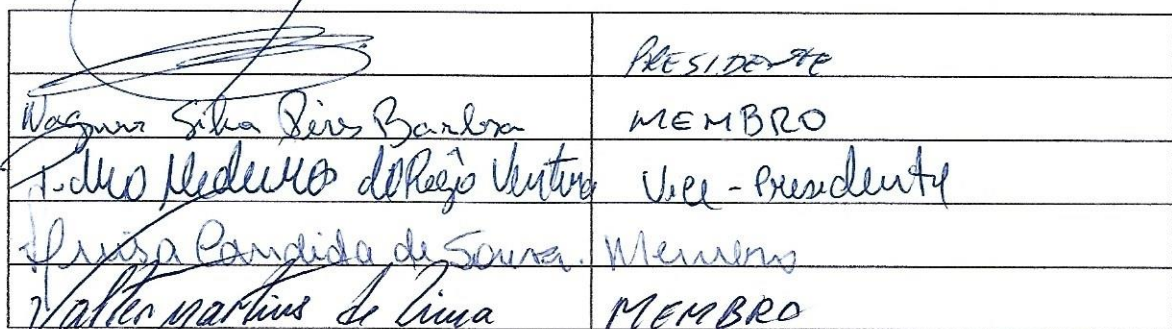 PRESIDENTE
Wagner Silva Pires Barbosa MEMBRO
Pedro Medeiros do Rêgo Ventura Vice-Presidente
Cândida de Souza. Membro
Valter Martins de Lima MEMBRO